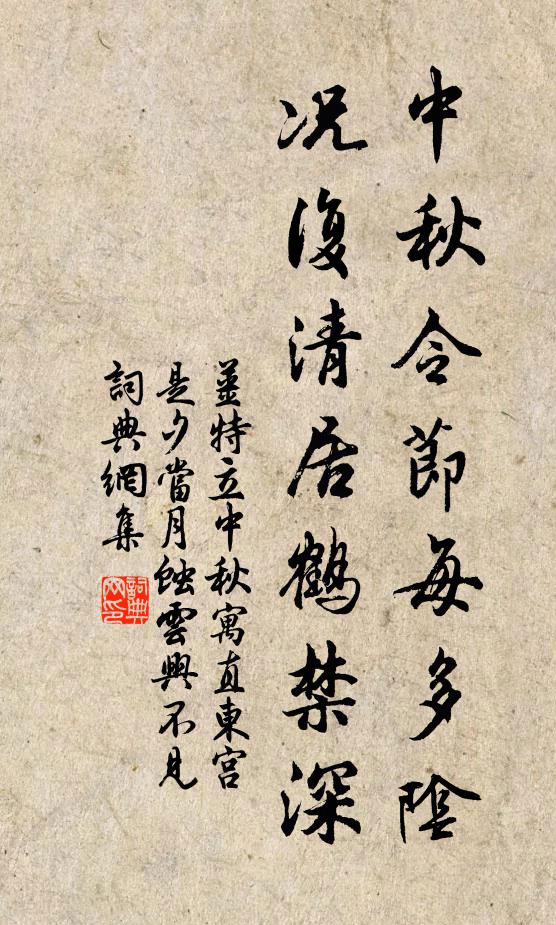 中秋令節每多陰
况復清居鶴禁深
姜特立中秋寓直東宮
是夕當月蝕雲興不見
詞典網集
詞典
网印